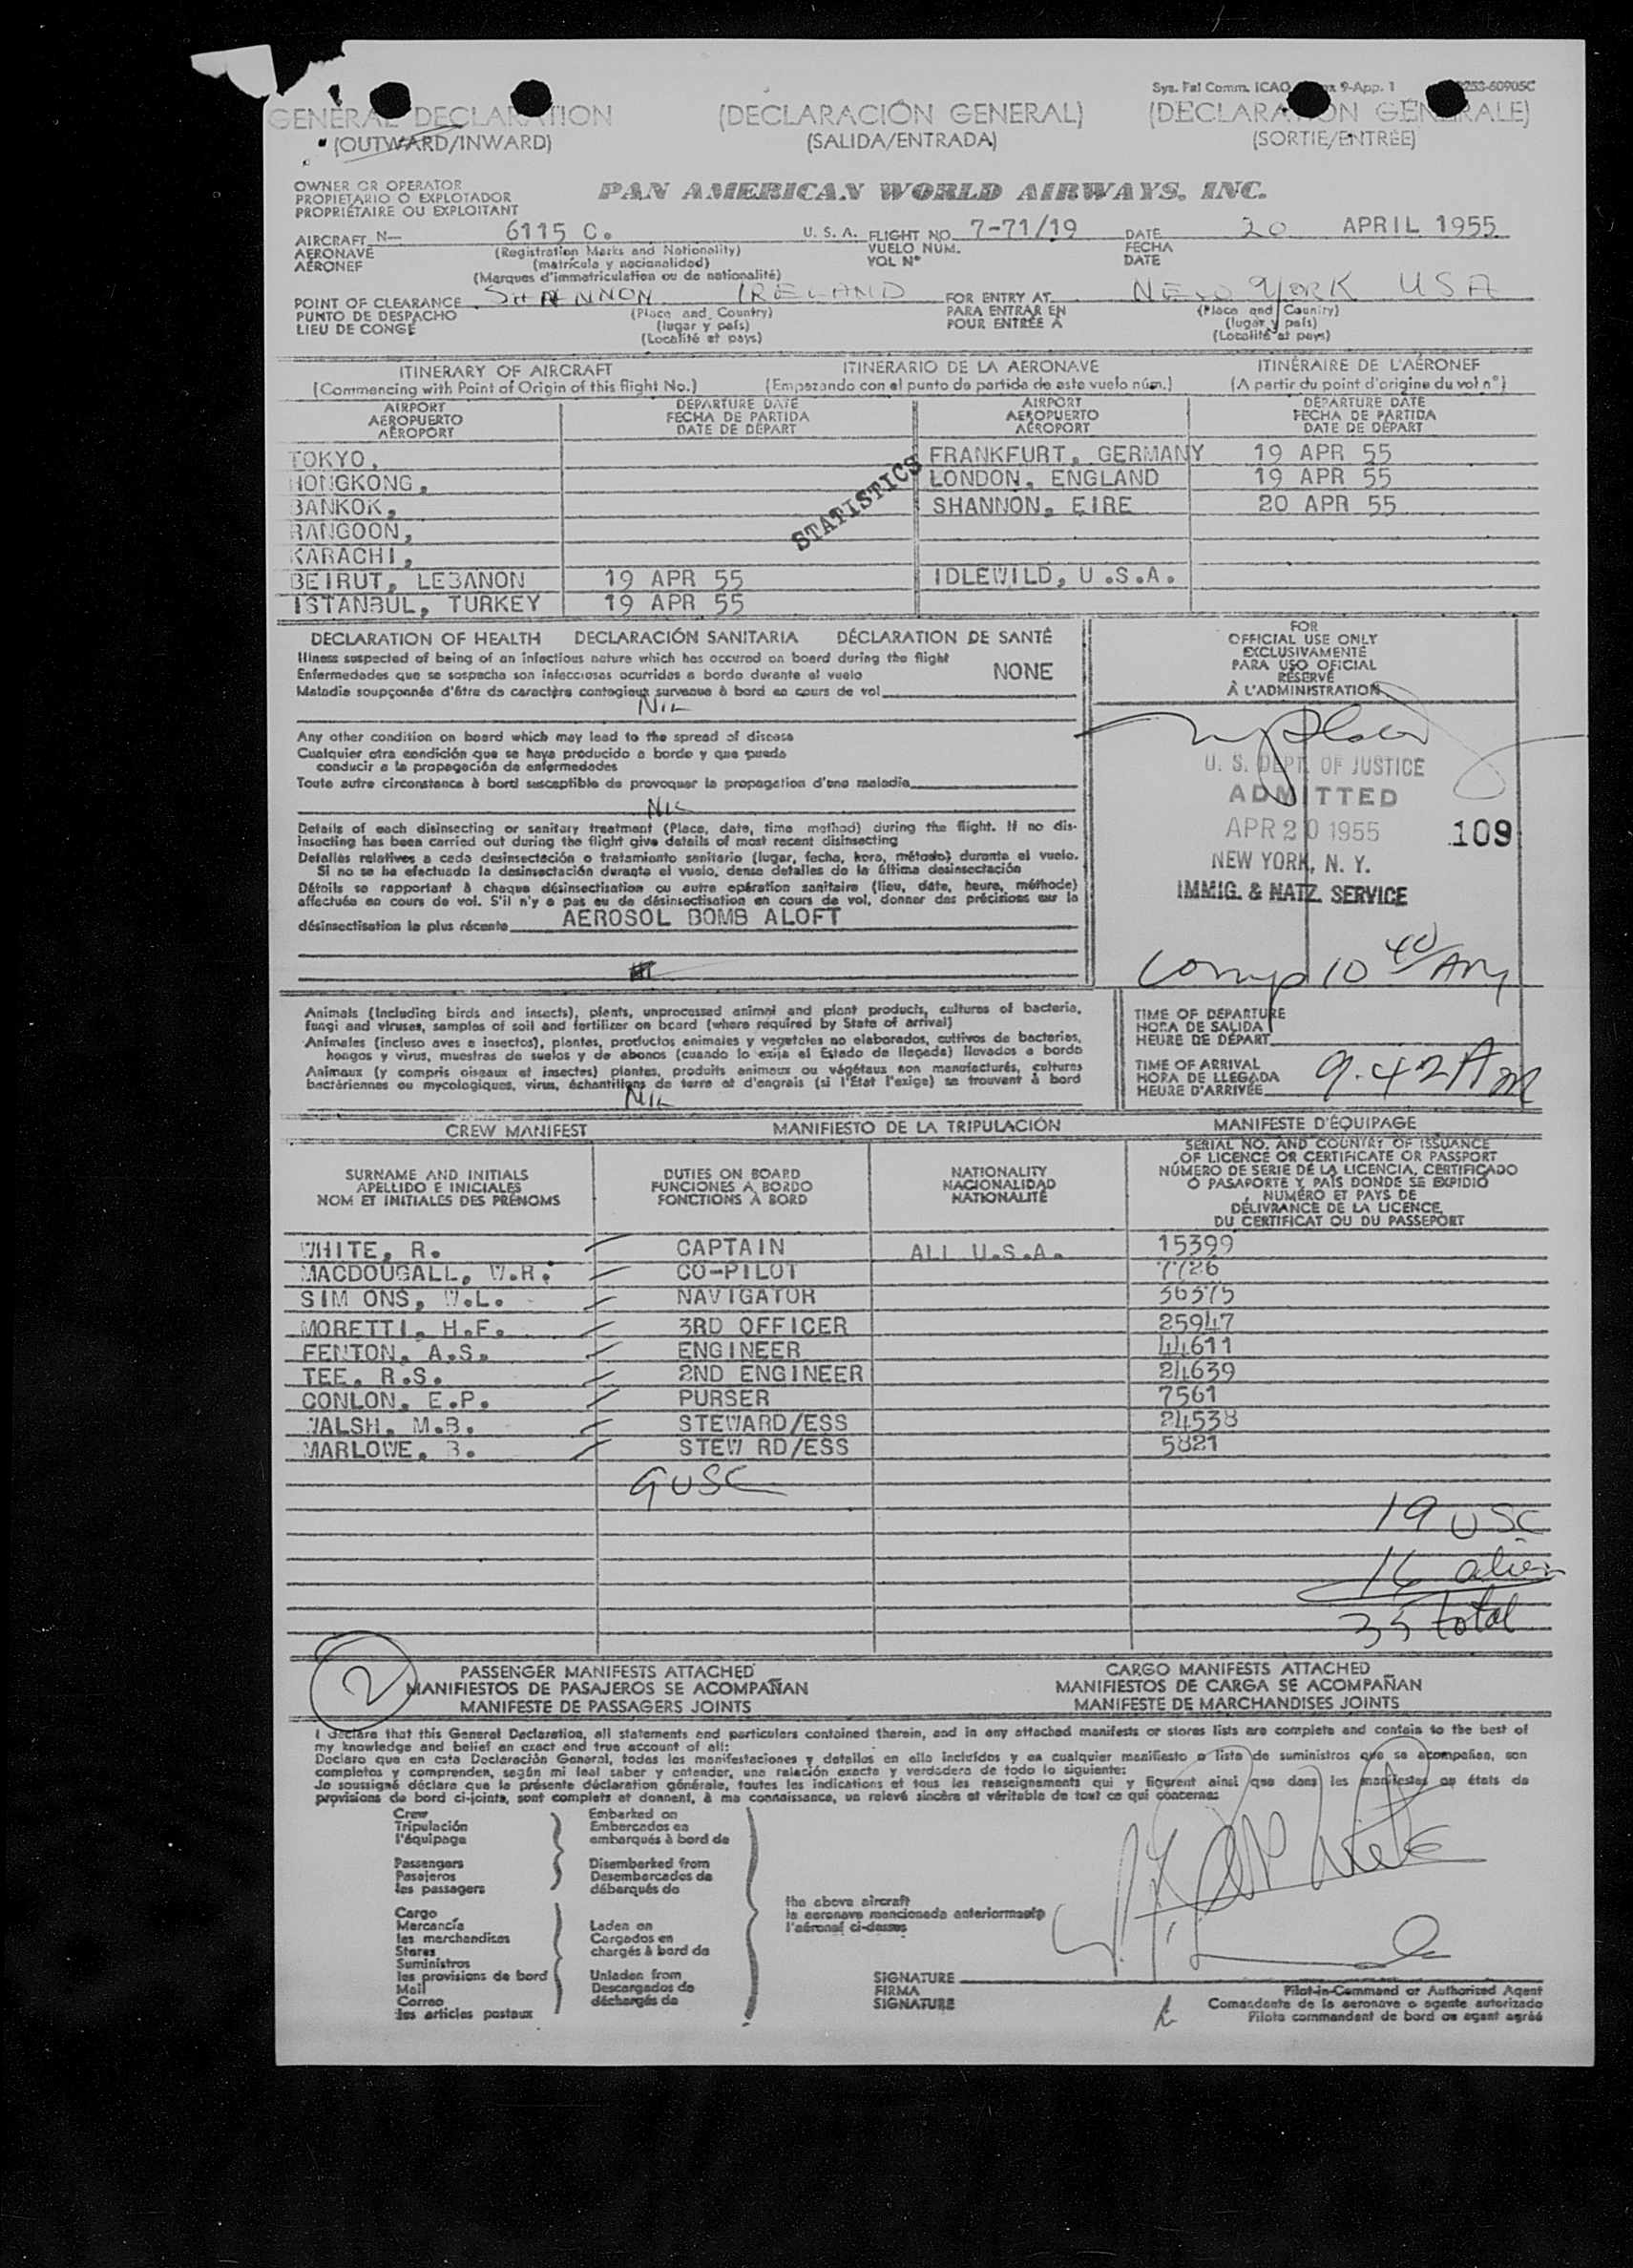 Sys. Fal Comm. ICAO 9-App. 1
GENERAL DECLARATION (DECLARACIÓN GENERAL) (DECLARATION GENERALE)
(OUTWARD/INWARD) (SALIDA/ENTRADA) (SORTIE/ENTRÉE)
OWNER OR OPERATOR
PROPIETARIO O EXPLOTADOR
PROPRIÉTAIRE OU EXPLOITANT
PAN AMERICAN WORLD AIRWAYS, INC.
AIRCRAFT N— 6115 C. U. S. A. FLIGHT NO. 7-71/19 DATE 20 APRIL 1955
AERONAVE (Registration Marks and Nationality) VUELO NÚM. FECHA
AÉRONEF (matrícula y nacionalidad) VOL N° DATE
(Marques d'immatriculation ou de nationalité)
POINT OF CLEARANCE SHANNON IRELAND FOR ENTRY AT NEW YORK USA
PUNTO DE DESPACHO (Place and Country) PARA ENTRAR EN (Place and Country)
LIEU DE CONGÉ (lugar y país) POUR ENTRÉE À (lugar y país)
(Localité et pays) (Localité et pays)
ITINERARY OF AIRCRAFT ITINERARIO DE LA AERONAVE ITINÉRAIRE DE L'AÉRONEF
(Commencing with Point of Origin of this flight No.) (Empezando con el punto de partida de este vuelo núm.) (A partir du point d'origine du vol n°)
AIRPORT DEPARTURE DATE AIRPORT DEPARTURE DATE
AEROPUERTO FECHA DE PARTIDA AEROPUERTO FECHA DE PARTIDA
AÉROPORT DATE DE DÉPART AÉROPORT DATE DE DÉPART
TOKYO, FRANKFURT, GERMANY 19 APR 55
HONGKONG, LONDON, ENGLAND 19 APR 55
BANKOK, SHANNON, EIRE 20 APR 55
RANGOON,
KARACHI,
BEIRUT, LEBANON 19 APR 55 IDLEWILD, U.S.A.
ISTANBUL, TURKEY 19 APR 55
STATISTICS
DECLARATION OF HEALTH DECLARACIÓN SANITARIA DÉCLARATION DE SANTÉ
Illness suspected of being of an infectious nature which has occured on board during the flight
Enfermedades que se sospecha son infecciosas ocurridas a bordo durante el vuelo NONE
Maladie soupçonnée d'être de caractère contagieux survenue à bord en cours de vol
NIL
Any other condition on board which may lead to the spread of disease
Cualquier otra condición que se haya producido a bordo y que pueda
conducir a la propagación de enfermedades
Toute autre circonstance à bord susceptible de provoquer la propagation d'une maladie
NIL
Details of each disinsecting or sanitary treatment (Place, date, time method) during the flight. If no dis-
insecting has been carried out during the flight give details of most recent disinsecting
Detalles relativos a cada desinsectación o tratamiento sanitario (lugar, fecha, hora, método) durante el vuelo.
Si no se ha efectuado la desinsectación durante el vuelo, dense detalles de la última desinsectación
Détails se rapportant à chaque désinsectisation ou autre opération sanitaire (lieu, date, heure, méthode)
affectuée en cours de vol. S'il n'y a pas eu de désinsectisation en cours de vol, donner des précisions sur la
désinsectisation la plus récente AEROSOL BOMB ALOFT
FOR
OFFICIAL USE ONLY
EXCLUSIVAMENTE
PARA USO OFICIAL
RÉSERVÉ
À L'ADMINISTRATION
U. S. DEPT. OF JUSTICE
ADMITTED
APR 20 1955 109
NEW YORK, N. Y.
IMMIG. & NATZ. SERVICE
Comp 10 40/AM
Animals (Including birds and insects), plants, unprocessed animal and plant products, cultures of bacteria,
fungi and viruses, samples of soil and fertilizer on board (where required by State of arrival)
Animales (incluso aves e insectos), plantas, productos animales y vegetales no elaborados, cultivos de bacterias,
hongos y virus, muestras de suelos y de abonos (cuando lo exija el Estado de llegada) llevados a bordo
Animaux (y compris oiseaux et insectes) plantes, produits animaux ou végétaux non manufacturés, cultures
bactériennes ou mycologiques, virus, échantillons de terre et d'engrais (si l'État l'exige) se trouvant à bord
NIL
TIME OF DEPARTURE
HORA DE SALIDA
HEURE DE DÉPART
TIME OF ARRIVAL
HORA DE LLEGADA
HEURE D'ARRIVÉE 9.42 AM
CREW MANIFEST MANIFIESTO DE LA TRIPULACIÓN MANIFESTE D'ÉQUIPAGE
SURNAME AND INITIALS
APELLIDO E INICIALES
NOM ET INITIALES DES PRÉNOMS
DUTIES ON BOARD
FUNCIONES A BORDO
FONCTIONS À BORD
NATIONALITY
NACIONALIDAD
NATIONALITÉ
SERIAL NO. AND COUNTRY OF ISSUANCE
OF LICENCE OR CERTIFICATE OR PASSPORT
NÚMERO DE SERIE DE LA LICENCIA, CERTIFICADO
O PASAPORTE Y PAÍS DONDE SE EXPIDIÓ
NUMÉRO ET PAYS DE
DÉLIVRANCE DE LA LICENCE,
DU CERTIFICAT OU DU PASSEPORT
WHITE, R. CAPTAIN ALL U.S.A. 15399
MACDOUGALL, W.R. CO-PILOT 7726
SIM ONS, W.L. NAVIGATOR 36375
MORETTI, H.F. 3RD OFFICER 25947
FENTON, A.S. ENGINEER 44611
TEE, R.S. 2ND ENGINEER 24639
CONLON, E.P. PURSER 7561
WALSH, M.B. STEWARD/ESS 24538
MARLOWE, B. STEW RD/ESS 5821
9 USC
19 USC
16 alien
35 total
2
PASSENGER MANIFESTS ATTACHED CARGO MANIFESTS ATTACHED
MANIFIESTOS DE PASAJEROS SE ACOMPAÑAN MANIFIESTOS DE CARGA SE ACOMPAÑAN
MANIFESTE DE PASSAGERS JOINTS MANIFESTE DE MARCHANDISES JOINTS
I declare that this General Declaration, all statements and particulars contained therein, and in any attached manifests or stores lists are complete and contain to the best of
my knowledge and belief an exact and true account of all:
Declaro que en esta Declaración General, todas las manifestaciones y detalles en ella incluídos y en cualquier manifiesto o lista de suministros que se acompañan, son
completos y comprenden, según mi leal saber y entender, una relación exacta y verdadera de todo lo siguiente:
Je soussigné déclare que la présente déclaration générale, toutes les indications et tous les renseignements qui y figurent ainsi que dans les manifestes ou états de
provisions de bord ci-joints, sont complets et donnent, à ma connaissance, un relevé sincère et véritable de tout ce qui concerne:
Crew Embarked on
Tripulación Embarcados en
l'équipage embarqués à bord de
Passengers Disembarked from
Pasajeros Desembarcados de
les passagers débarqués de
the above aircraft
la aeronave mencionada anteriormente
l'aéronef ci-dessus
Cargo
Mercancía Laden on
les marchandises Cargados en
Stores chargés à bord de
Suministros
les provisions de bord Unladen from
Mail Descargados de
Correo déchargés de
les articles postaux
SIGNATURE
FIRMA
SIGNATURE
Pilot-in-Command or Authorized Agent
Comandante de la aeronave o agente autorizado
Pilote commandant de bord ou agent agréé